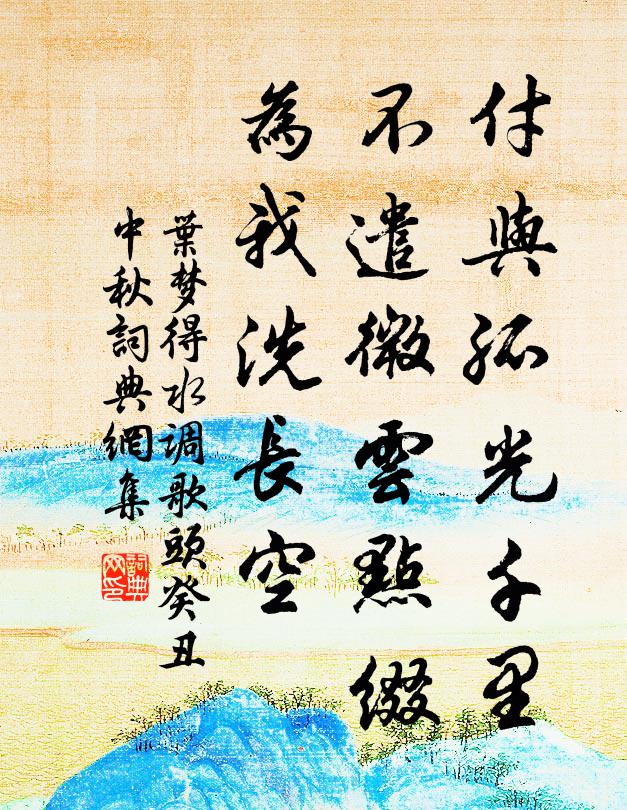 付與孤光千里
不遣微雲點綴
為我洗長空
葉梦得水调歌頭癸丑
中秋詞典網集
詞典网印